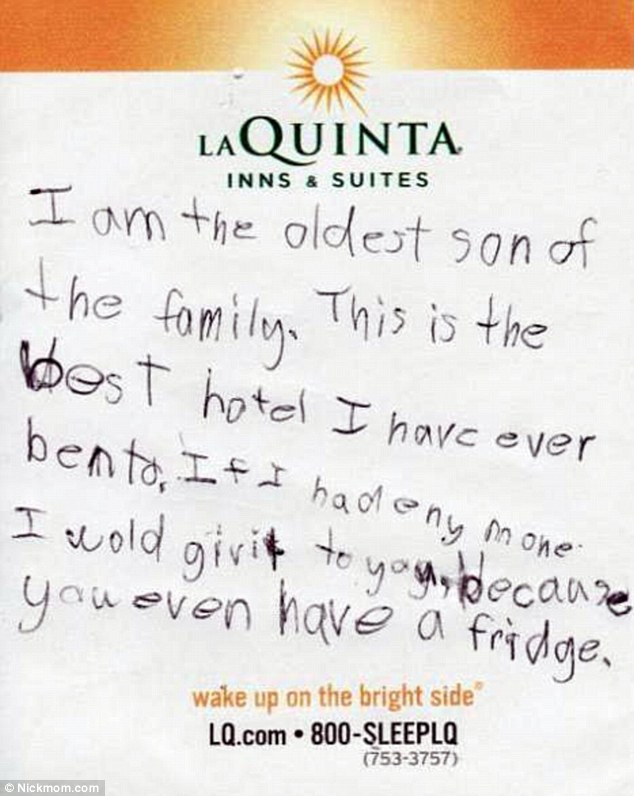 LAQUINTA
INNS & SUITES
I am the oldest son of
the family. This is the
best hotel I have ever
bento. If I had eny mone
I wold givit to you, because
you even have a fridge.
wake up on the bright side®
LQ.com • 800-SLEEPLQ
(753-3757)
© Nickmom.com